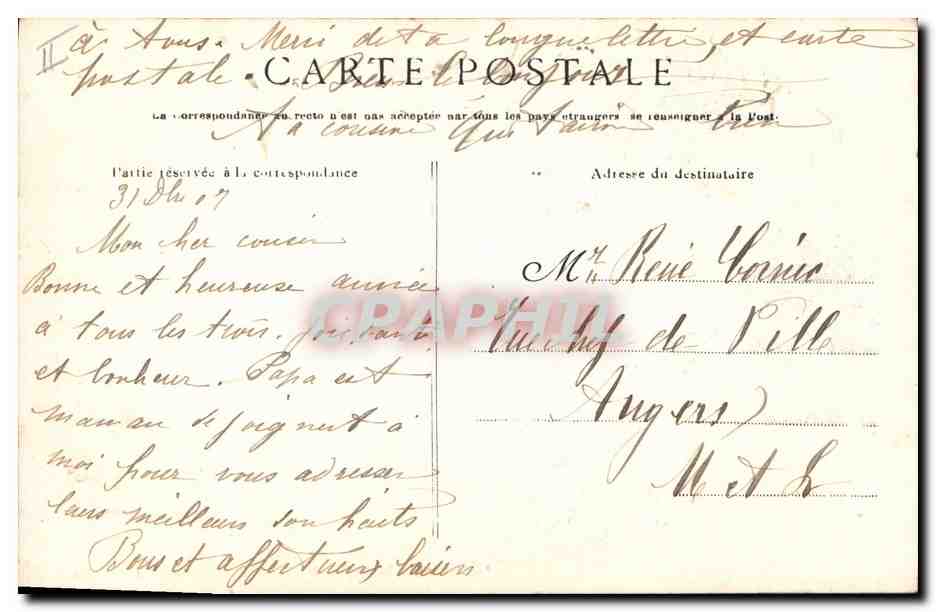 II
à tous. Merci de ta longue lettre, et carte
postale.
CARTE POSTALE
La correspondance au recto n'est pas acceptée par tous les pays étrangers se renseigner à la Poste
Ta cousine qui t'aime bien
Partie réservée à la correspondance
Adresse du destinataire
31 Dbre 07
Mon cher cousin
Bonne et heureuse année
à tous les trois. joie, santé
et bonheur. Papa et
maman se joignent à
moi pour vous adresser
leurs meilleurs souhaits
Bons et affectueux baisers
Mr René
de Ville
Angers
M et L
CPAPHIL